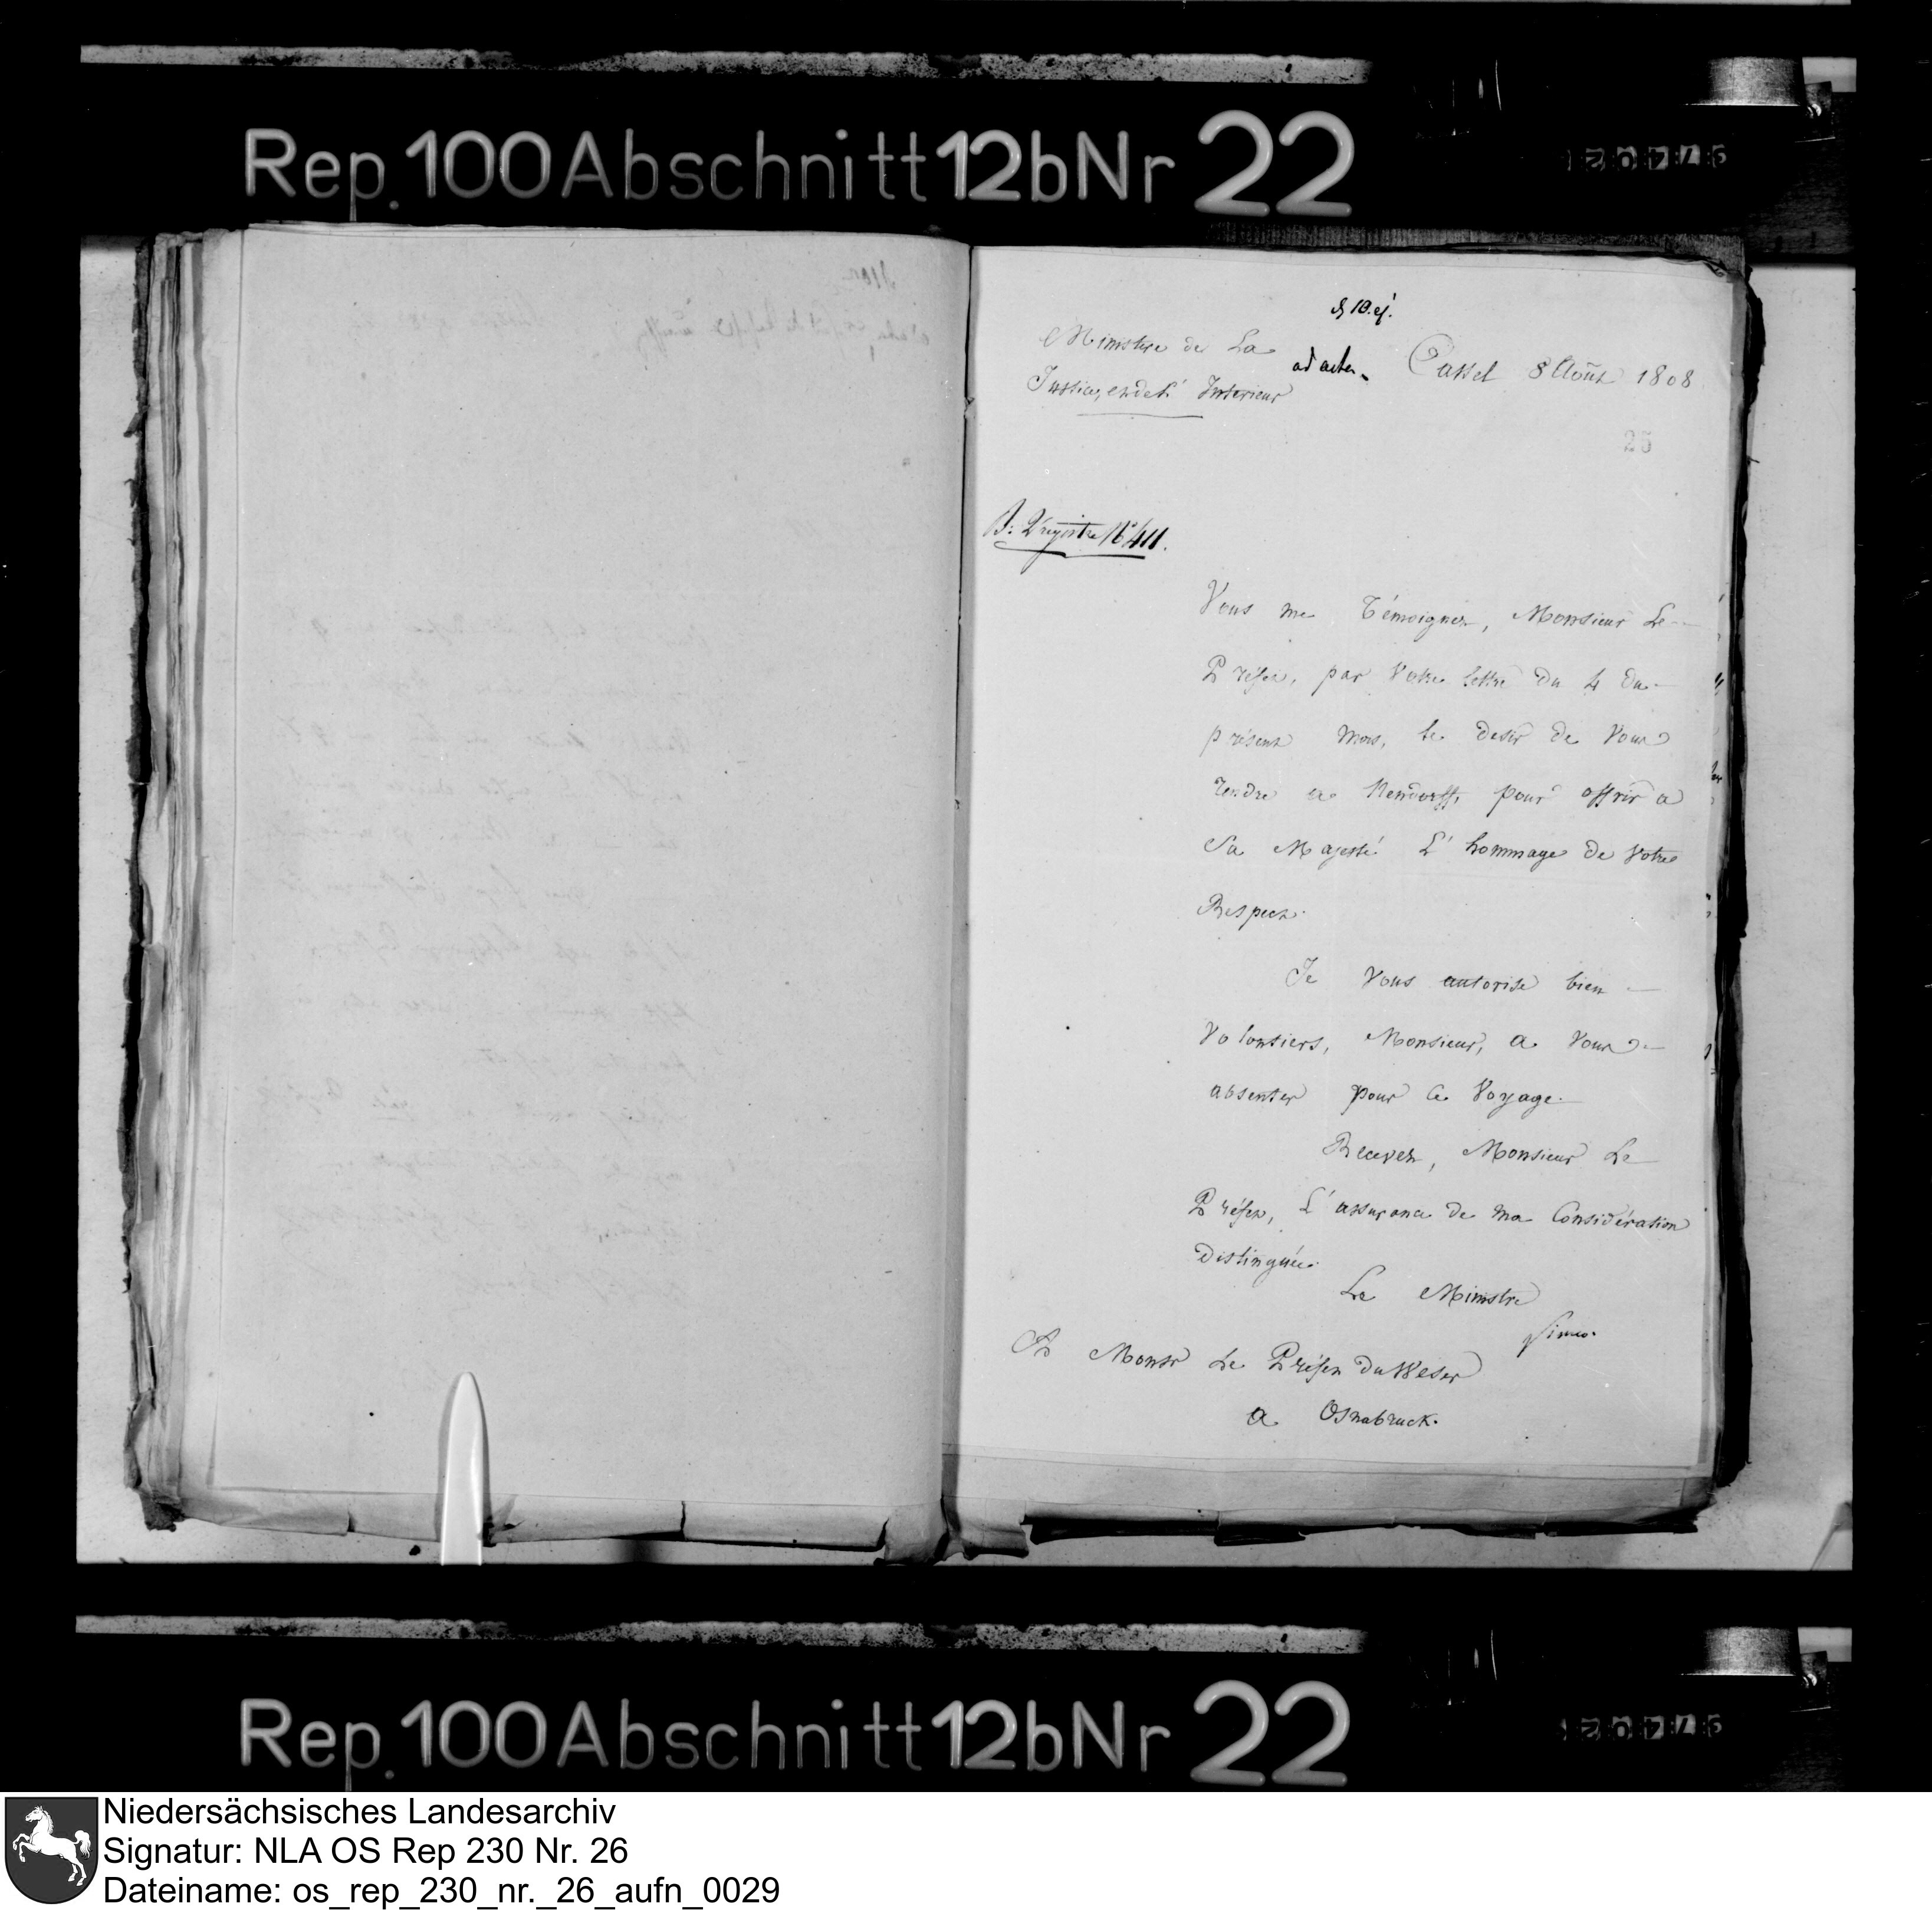 Rep. 100 Abschnitt 12b Nr 22
Ministre de La
Justice, et de L' Interieur
ad acta.
Cassel 8 Août 1808
25
N° 411.
Vous me Témoignez, Monsieur Le
Préfet, par Votre lettre du 4 du
présent mois, le desir de Vous
rendre a Nendorff, pour offrir a
Sa Majesté L' hommage de Votre
Respect.
Je Vous autorise bien
Volontiers, Monsieur, a Vous
absenter pour ce Voyage.
Recevez, Monsieur Le
Préfet, L'assurance de ma Considération
Distinguée.
Le Ministre
Simeon
A Monsr Le Préfet du Weser
a Osnabruck.
Rep. 100 Abschnitt 12b Nr 22
Niedersächsisches Landesarchiv
Signatur: NLA OS Rep 230 Nr. 26
Dateiname: os_rep_230_nr._26_aufn_0029